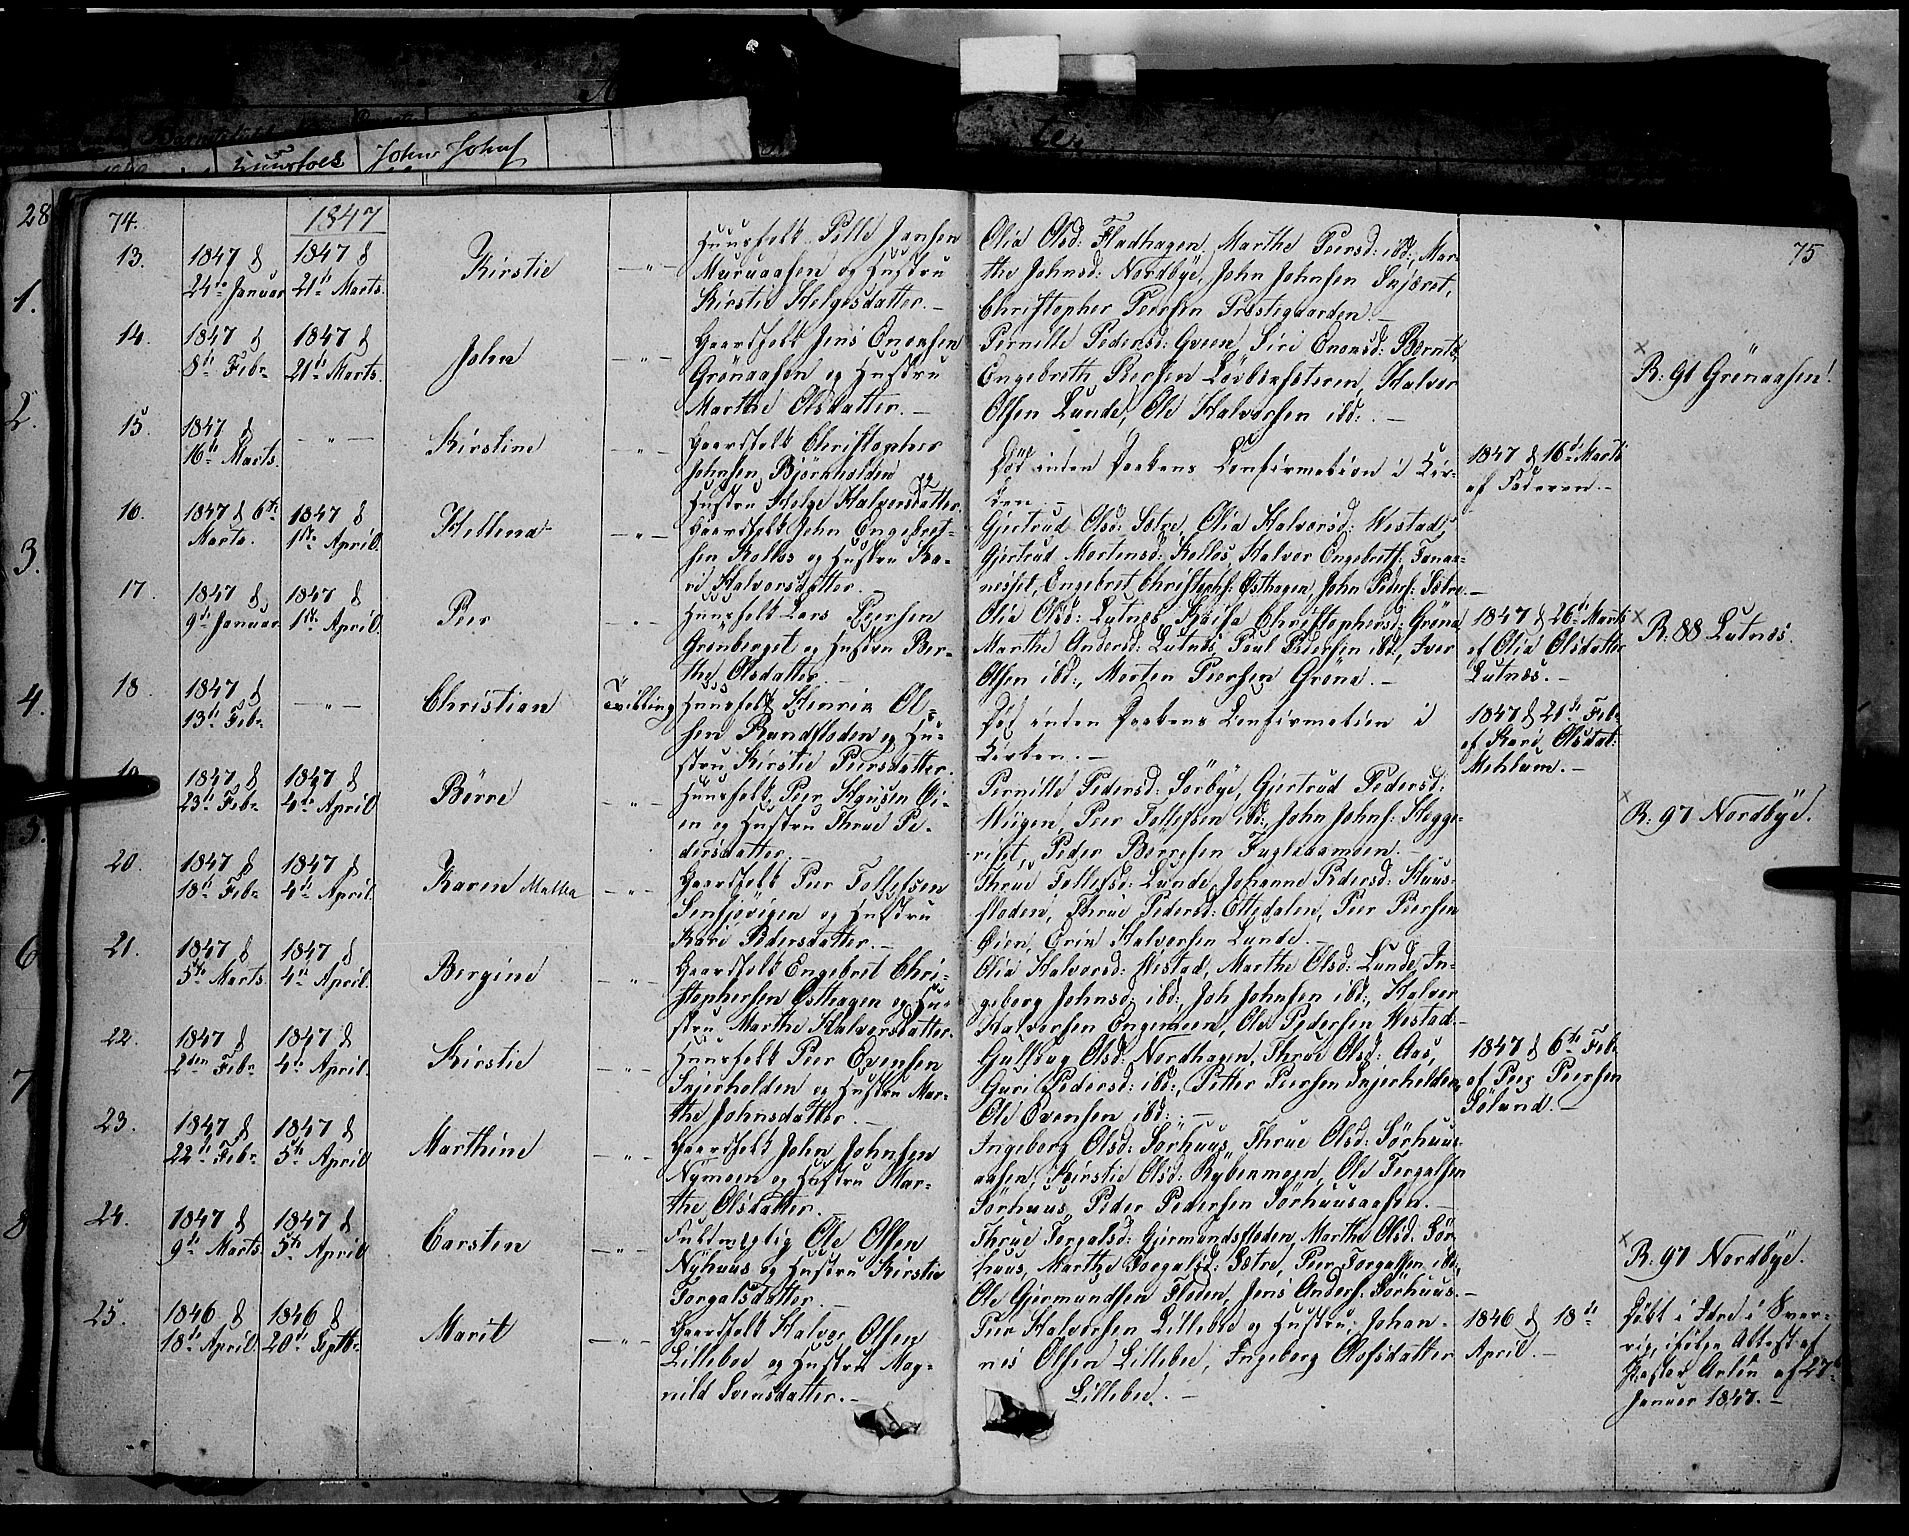 28
1.
2.
3.
4.
5.
6
7
8
Huusfolk John Johns
te,
74.
1847
75
13.
1847 d
24de Januar
1847 d
21de Marts.
Kirstie
— " —
Huusfolk Pelle Jansen
Muruaasen og Hustru
Kirstie Helgesdatter. —
Olia Olsd: Fladhagen, Marthe Peersd: ibd:, Mar-
the Johnsd: Nordbÿe, John Johnsen Snjæret,
Christopher Peersen Præstegaarden. —
14.
1847 d
8de Febr
1847 d
21de Marts.
John
— " —
Gaardfolk Jens Enensen
Grönaasen og Hustru
Marthe Olsdatter. —
Pernille Pedersd: Green, Siri Enensd: Bernts,
Engebreth Peersen Lövbergsæteren, Halvor
Olsen Lunde, Ole Halvorsen ibd: —
R: 91 Grönaasen!
15.
1847 d
16de Marts.
— " —
Kirstine
— " —
Gaardfolk Christopher
Johnsen Björnholden
Hustru Helge Halvorsdatter
Död inden Daabens Confirmation i Kir-
ken. —
1847 d 16de Marts
af Faderen. —
16.
1847 d 6te
Marts.
1847 d
1ste April.
Hellena
— " —
Gaardfolk John Engebret-
sen Kolbos og Hustru Ka-
ri Halvorsdatter.
Gjertrud Olsd: Sætre, Olia Halvorsd: Westad,
Gjertrud Mortensd: Kolbos, Halvor Engebreths: Tanaa-
neset, Engebret Christophs: Østhagen, John Peders: Sætre. —
17.
1847 d
9de Januar
1847 d
1ste April.
Peer
— " —
Huusfolk Lars Peersen
Grönberget og Hustru Ber-
the Olsdatter. —
Olia Olsd: Lutnes, Kjaisa Christophersd: Gröna
Marthe Andersd: Lutnes, Poul Pedersen ibd:, Iver
Olsen ibd:, Morten Peersen Gröna. —
1847 d 26de Marts
af Olia Olsdatter
Lutnæs. —
R: 88 Lutnæs.
18.
1847 d
13de Febr
— " —
Christian
Tvilling
Huusfolk Henrik Ol-
sen Rundfloden og Hu-
stru Kirstie Peersdatter.
Död inden Daabens Confirmation i
Kirken. —
1847 d 21de Febr
af Kari Olsdat:
Mehlum. —
19
1847 d
23de Febr
1847 d
4de April
Börre
— " —
Huusfolk Peer Hansen Øi-
en og Hustru Thrue Pe-
dersdatter. —
Pernille Pedersd: Sörbÿe, Gjertrud Pedersd:
Wiigen, Peer Tollefsen ibd:, John Johns: Hegge-
riset, Peder Börresen Fugleaamoen. —
R: 97 Nordbÿe.
20.
1847 d
18de Febr
1847 d
4de April.
Karen Mallea
— " —
Gaardfolk Peer Tollefsen
Sensjövigen og Hustru
Kari Pedersdatter. —
Thrue Tollefsd: Lunde, Johanne Pedersd: Huus-
floden, Thrue Pedersd: Ottzdalen, Peer Peersen
Øien, Erik Halvorsen Lunde. —
21.
1847 d
5te Marts.
1847 d
4de April.
Bergine
— " —
Gaardfolk Engebret Chri-
stophersen Østhagen og Hu-
stru Marthe Halvorsdatter.
Olia Halvorsd: Westad, Marthe Olsd: Lunde, In-
geborg Johnsd: ibd:, Joh Johnsen ibd:, Halvor
Halvorsen Engemoen, Ole Pedersen Westad. —
22.
1847 d
2den Febr
1847 d
4de April.
Kirstie
— " —
Huusfolk Peer Evensen
Snjerholden og Hustru Mar-
the Johnsdatter. —
Gulloug Olsd: Nordhagen, Thrue Olsd: Aas,
Guri Pedersd: ibd:, Petter Peersen Snjerholden,
Ole Evensen ibd: —
1847 d 6te Febr
af Peer Peersen
Sölund. —
23.
1847 d
22de Febr
1847 d
5te April
Marthine
— " —
Gaardfolk John Johnsen
Nÿmoen og Hustru Mar-
the Olsdatter. —
Ingeborg Olsd: Sörhuus, Thrue Olsd: Sörhuus-
aasen, Kirstie Olsd: Rybermoen, Ole Torgalsen
Sörhuus, Peder Pedersen Sörhuusaasen. —
24.
1847 d
9de Marts.
1847 d
5te April
Carsten
— " —
Fuldmægtig Ole Olsen
Nÿhuus og Hustru Kirstie
Torgalsdatter. —
Thrue Torgalsd: Gjermundsfloden, Marthe Olsd: Sör-
huus, Marthe Torgalsd: Sætre, Peer Torgalsen ibd:,
Ole Gjermundsen Floden, Jens Anders: Sörhuus. —
R: 97 Nordbÿe.
25.
1846 d
18de April.
1846 d
20de Septbr
Marit
— " —
Gaardfolk Halvor Olsen
Lillebo og Hustru Mag-
nild Svensdatter. —
Peer Halvorsen Lillebo og Hustru, Johan-
nes Olsen Lillebo, Ingeborg Olofsdatter
Lillebo. —
1846 d 18de
April. —
Döbt i Idre i Sver-
rig, ifölge Attest af
Pastor Arlén af 27de
Januar 1847. —